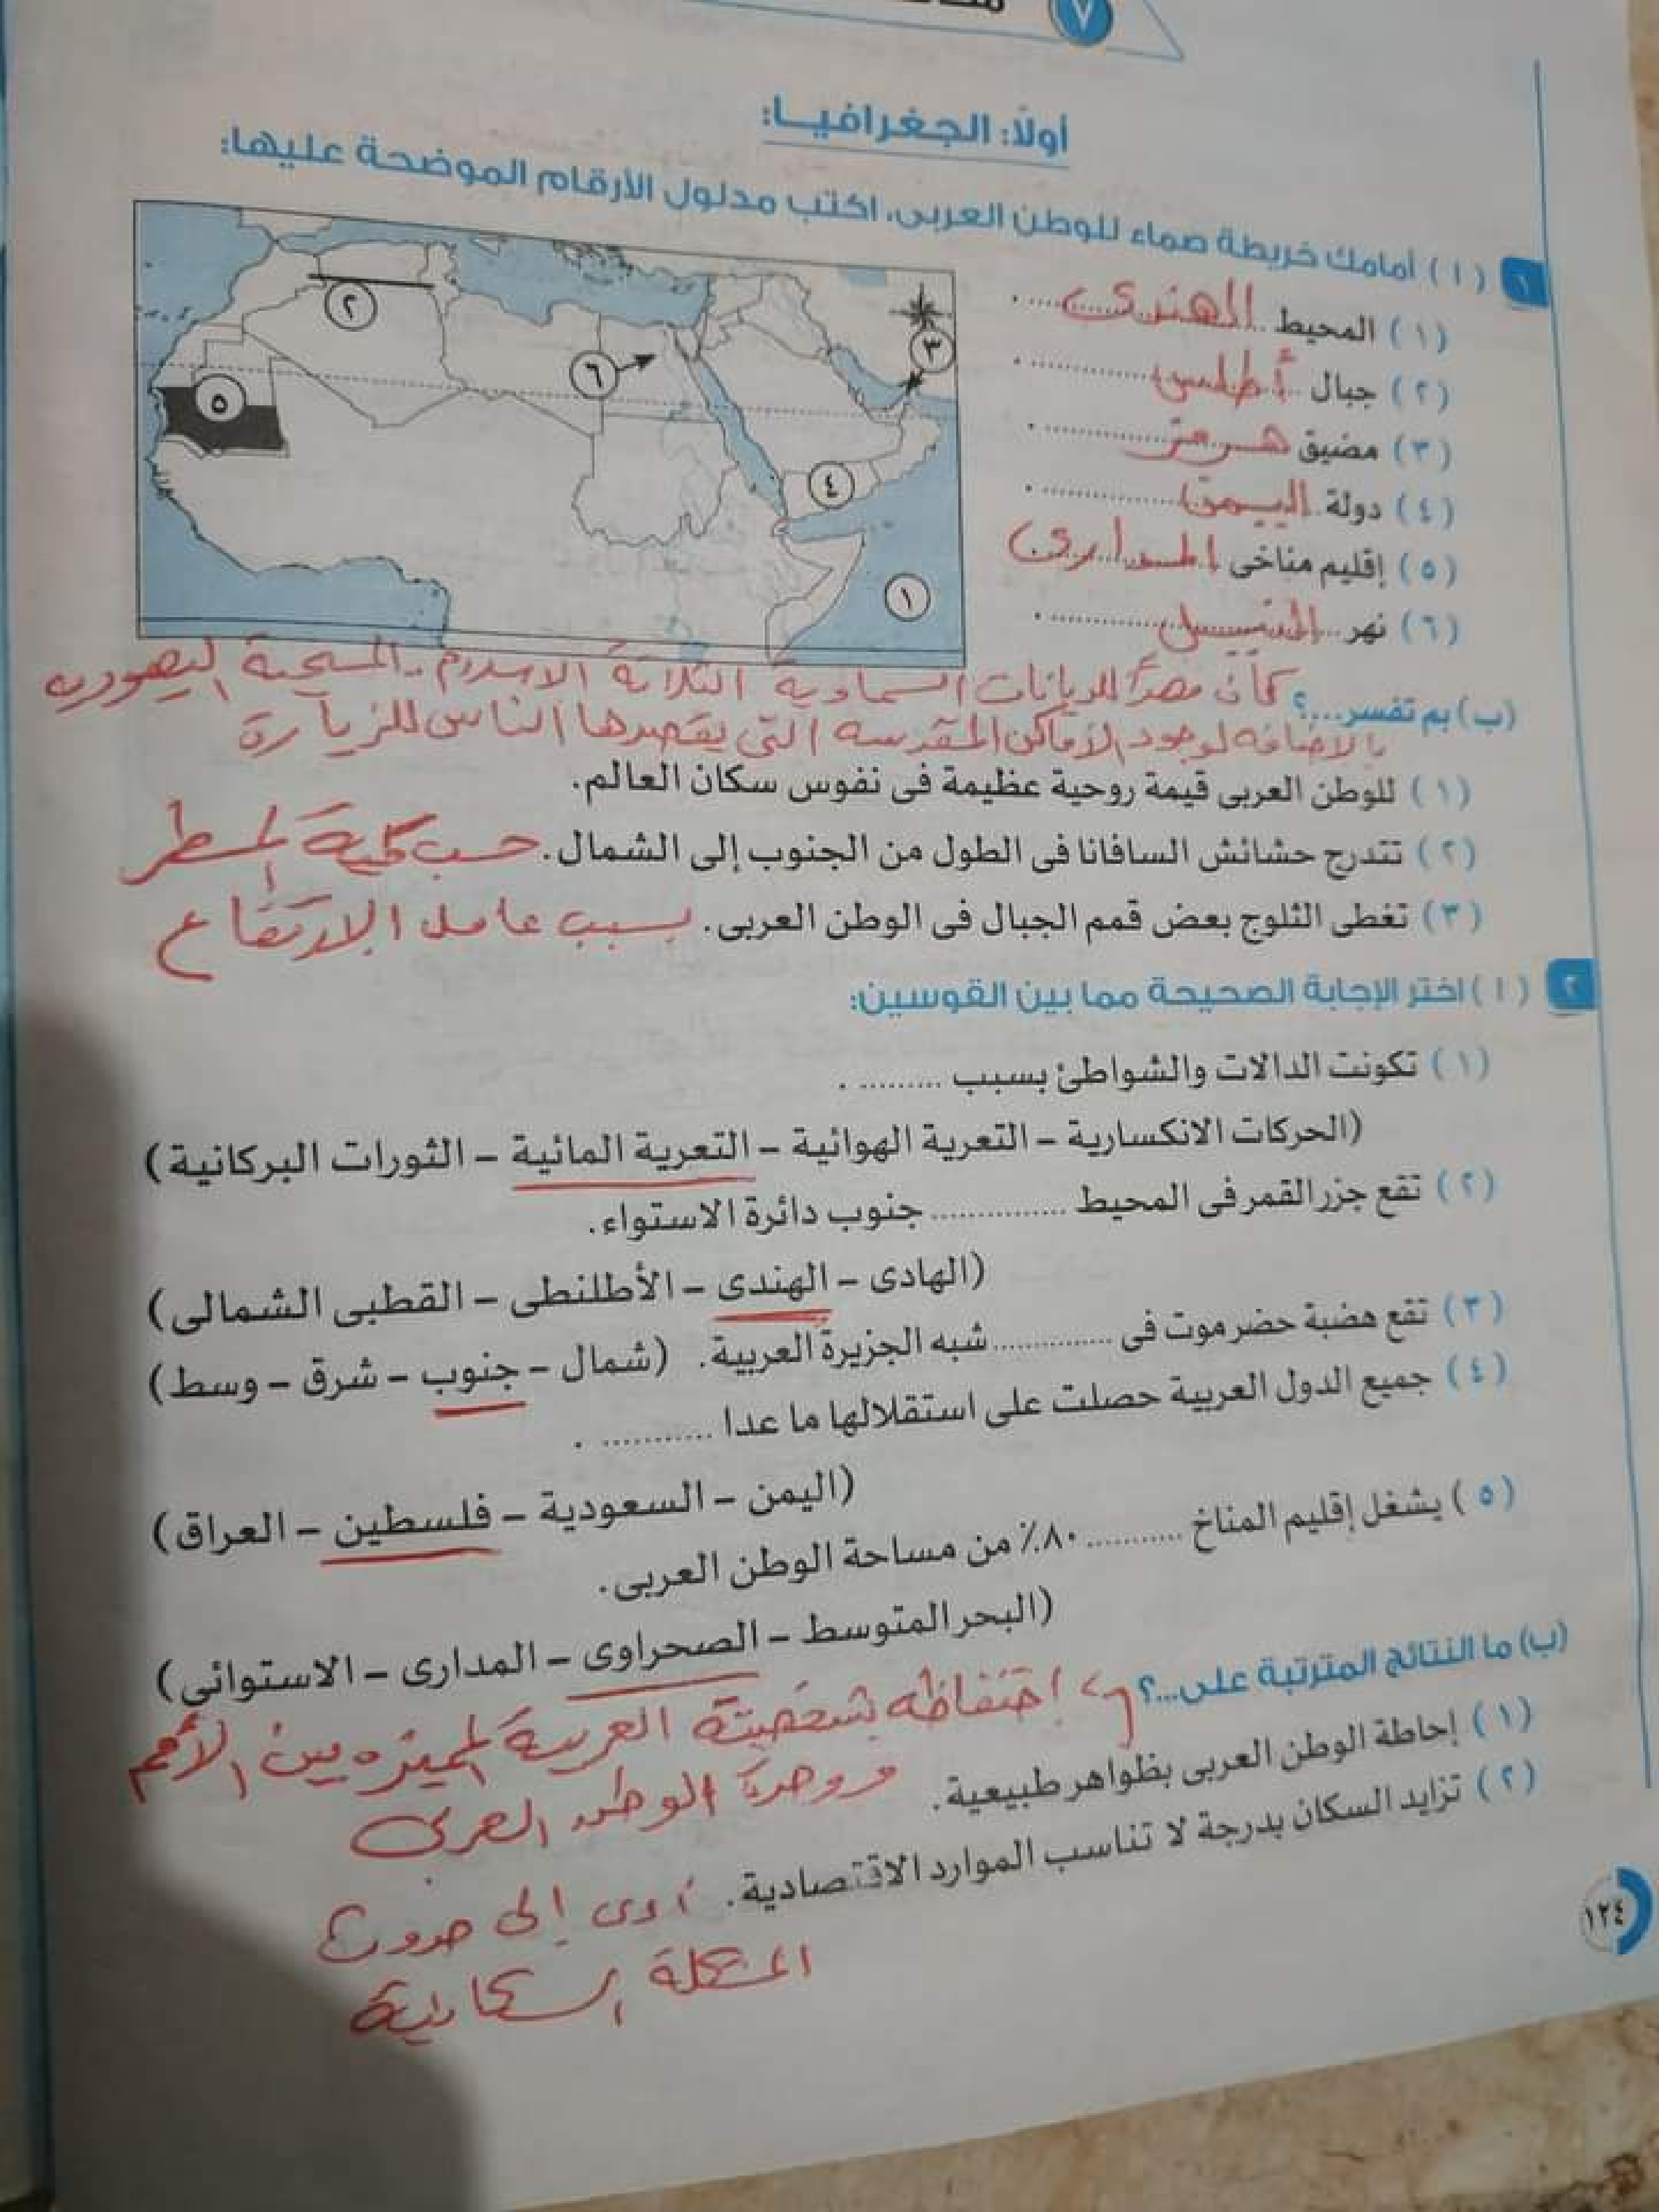 ٧
أولًا: الجغرافيا:
١ (ا) أمامك خريطة صماء للوطن العربى، اكتب مدلول الأرقام الموضحة عليها:
(١) المحيط الهندى
(٢) جبال أطلس
(٣) مضيق هرمز
(٤) دولة اليمن
(٥) إقليم مناخى المدارى
(٦) نهر النيل
٢
٣
٦
٥
٤
١
(ب) بم تفسر....؟ كان مصدرًا للديانات السماوية الثلاثة الاسلام - المسيحية اليهودية
بالاضافه لوجود الأماكن المقدسه التى يقصدها الناس للزيارة
(١) للوطن العربى قيمة روحية عظيمة فى نفوس سكان العالم.
(٢) تتدرج حشائش السافانا فى الطول من الجنوب إلى الشمال. حسب كمية المطر
(٣) تغطى الثلوج بعض قمم الجبال فى الوطن العربى. بسبب عامل الارتفاع
٢ (ا) اختر الإجابة الصحيحة مما بين القوسين:
(١) تكونت الدالات والشواطئ بسبب ......... .
(الحركات الانكسارية – التعرية الهوائية – التعرية المائية – الثورات البركانية)
(٢) تقع جزر القمر فى المحيط .............. جنوب دائرة الاستواء.
(الهادى – الهندى – الأطلنطى – القطبى الشمالى)
(٣) تقع هضبة حضرموت فى ............. شبه الجزيرة العربية. (شمال – جنوب – شرق – وسط)
(٤) جميع الدول العربية حصلت على استقلالها ما عدا ........... .
(اليمن – السعودية – فلسطين – العراق)
(٥) يشغل إقليم المناخ .......... ٨٠٪ من مساحة الوطن العربى.
(البحر المتوسط – الصحراوى – المدارى – الاستوائى)
(ب) ما النتائج المترتبة على...؟ احتفاظه بشخصيتة العربية المميزه بين الأمم
(١) إحاطة الوطن العربى بظواهر طبيعية. ووحدة الوطن العربى
(٢) تزايد السكان بدرجة لا تناسب الموارد الاقتصادية. أدى إلى حدوث
المشكلة السكانية
١٢٤